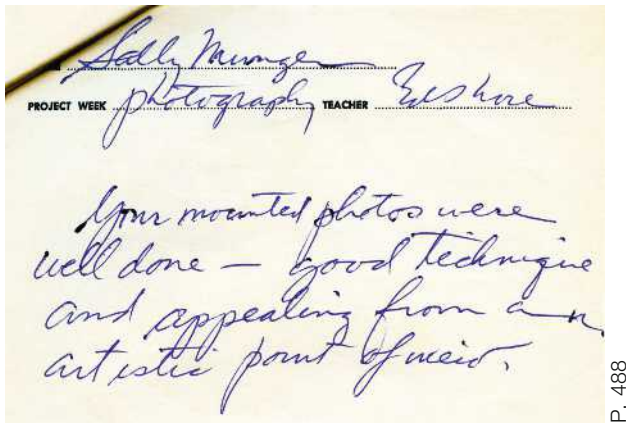 Sally Munger
PROJECT WEEK photography TEACHER Ed Shore
Your mounted photos were
well done — good technique
and appealing from an
artistic point of veiw.
P. 488